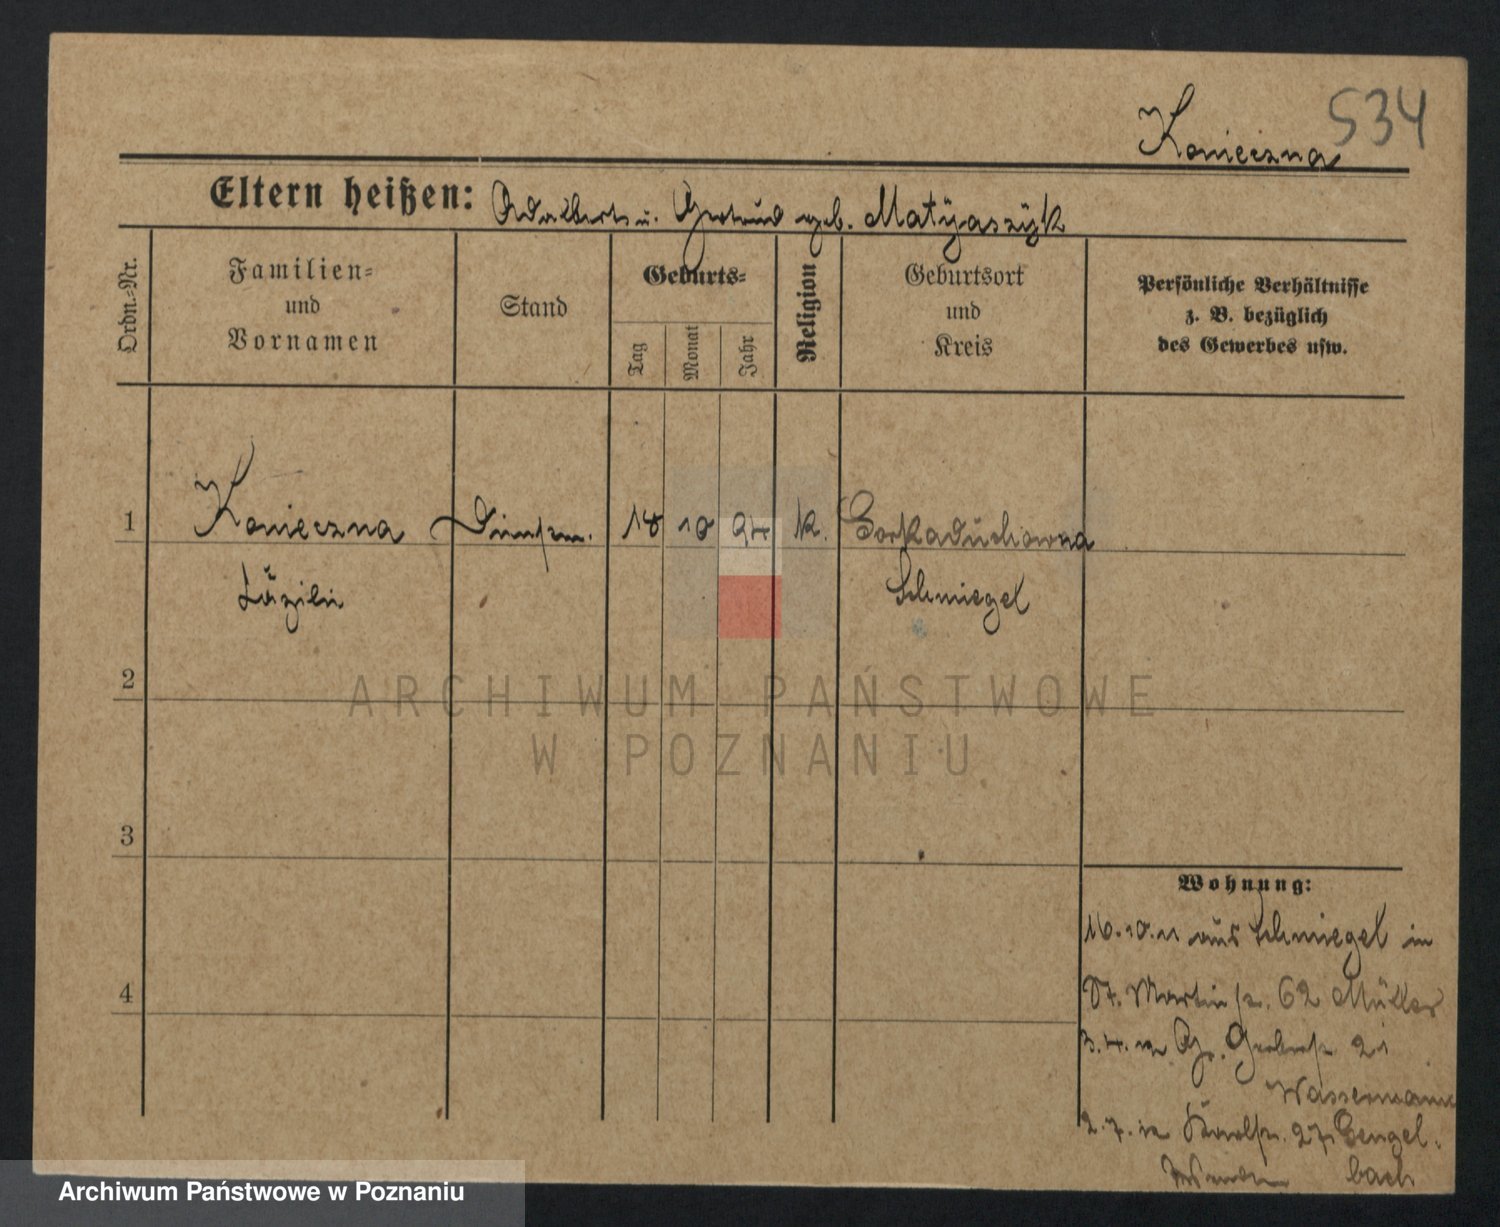 534
Konieczna
Eltern heißen: Adalbert u. Gertrud geb. Matÿaszÿk
Ordn.-Nr.
Familien-
und
Vornamen
Stand
Geburts-
Tag
Monat
Jahr
Religion
Geburtsort
und
Kreis
Persönliche Verhältnisse
z. B. bezüglich
des Gewerbes usw.
1 Konieczna 18 10 94 k. Gorkaduchowna
Luzie Schmiegel
2
ARCHIWUM PAŃSTWOWE
W POZNANIU
3
Wohnung:
16.10.11 aus Schmiegel in
4
St. Martin str. 62 Müller
3.4. in Gr. Gerberstr. 21
Wassermann
2.7. in 27 Gengel-
bach
Archiwum Państwowe w Poznaniu